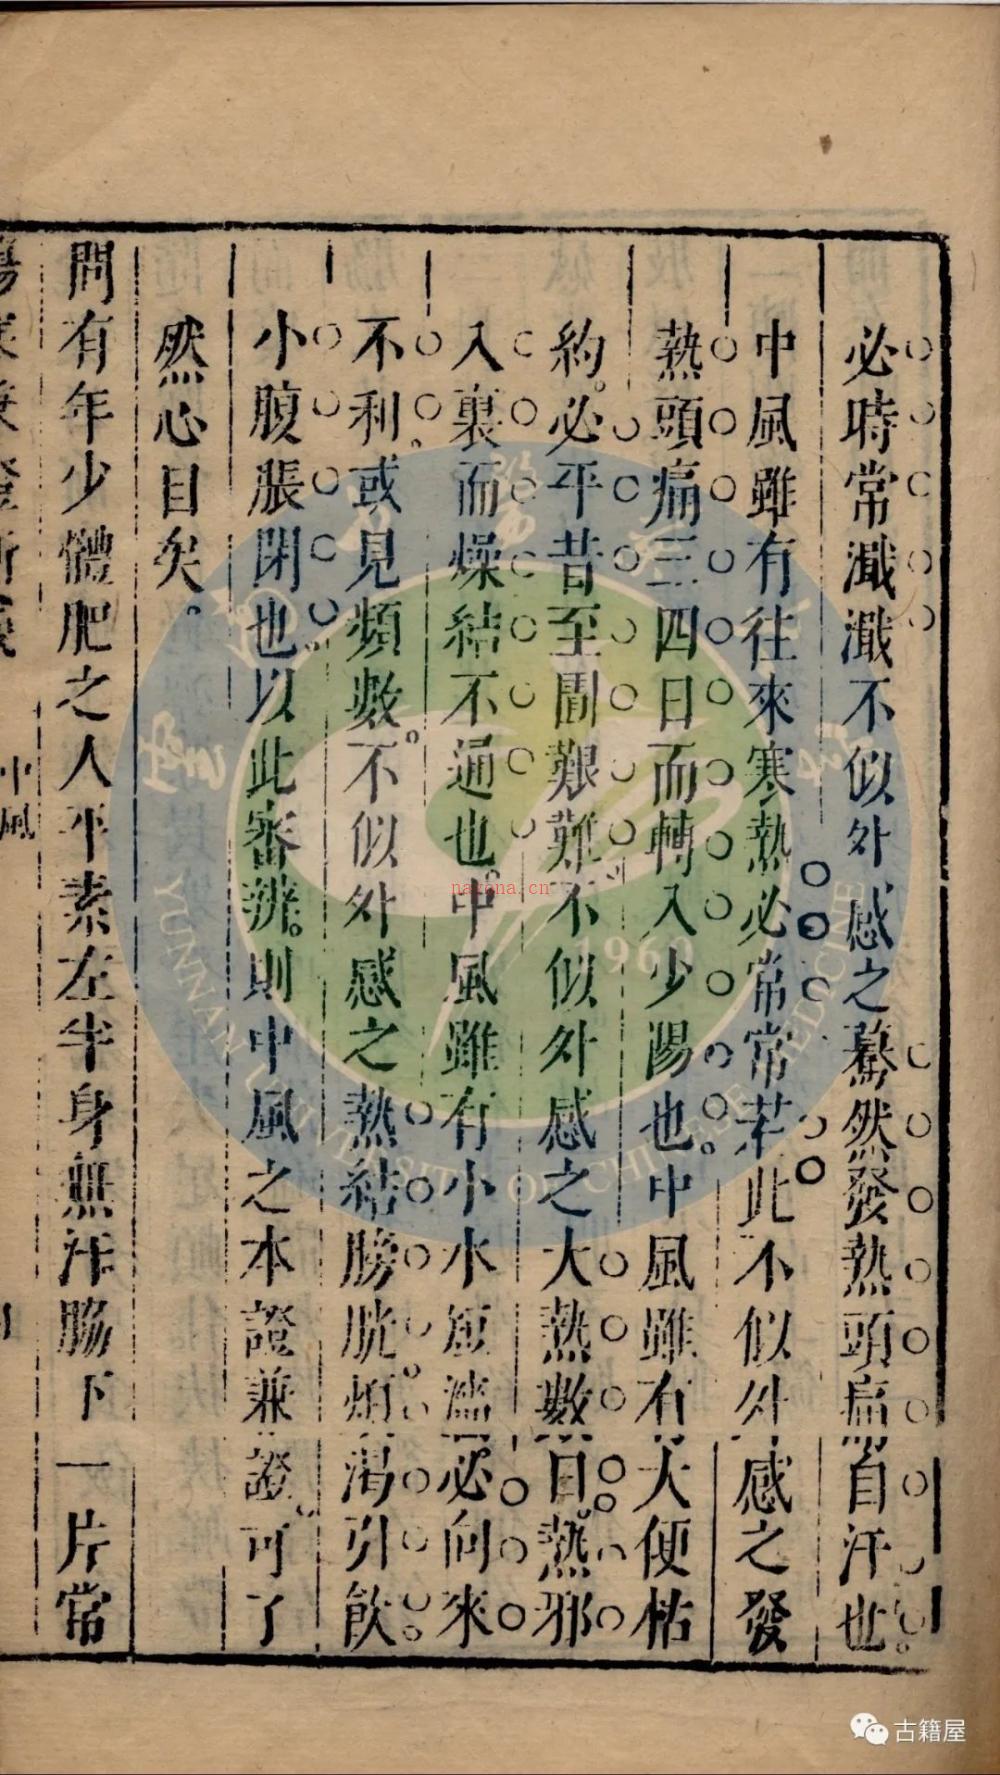 必時常濈濈不似外感之驀然發熱頭痛自汗也
中風雖有往來寒熱必常常若此不似外感之發
熱頭痛三四日而轉入少陽也中風雖有大便枯
約必平昔至圊艱難不似外感之大熱數日熱邪
入裏而燥結不通也中風雖有小水短濇必向來
不利或見頻數不似外感之熱結膀胱煩渴引飲
小腹脹閉也以此審辨則中風之本證兼證可了
然心目矣
問有年少體肥之人平素左半身無汗脇下一片常
中風
YUNNAN UNIVERSITY OF CHINESE MEDICINE
1960
nayona.cn
古籍屋